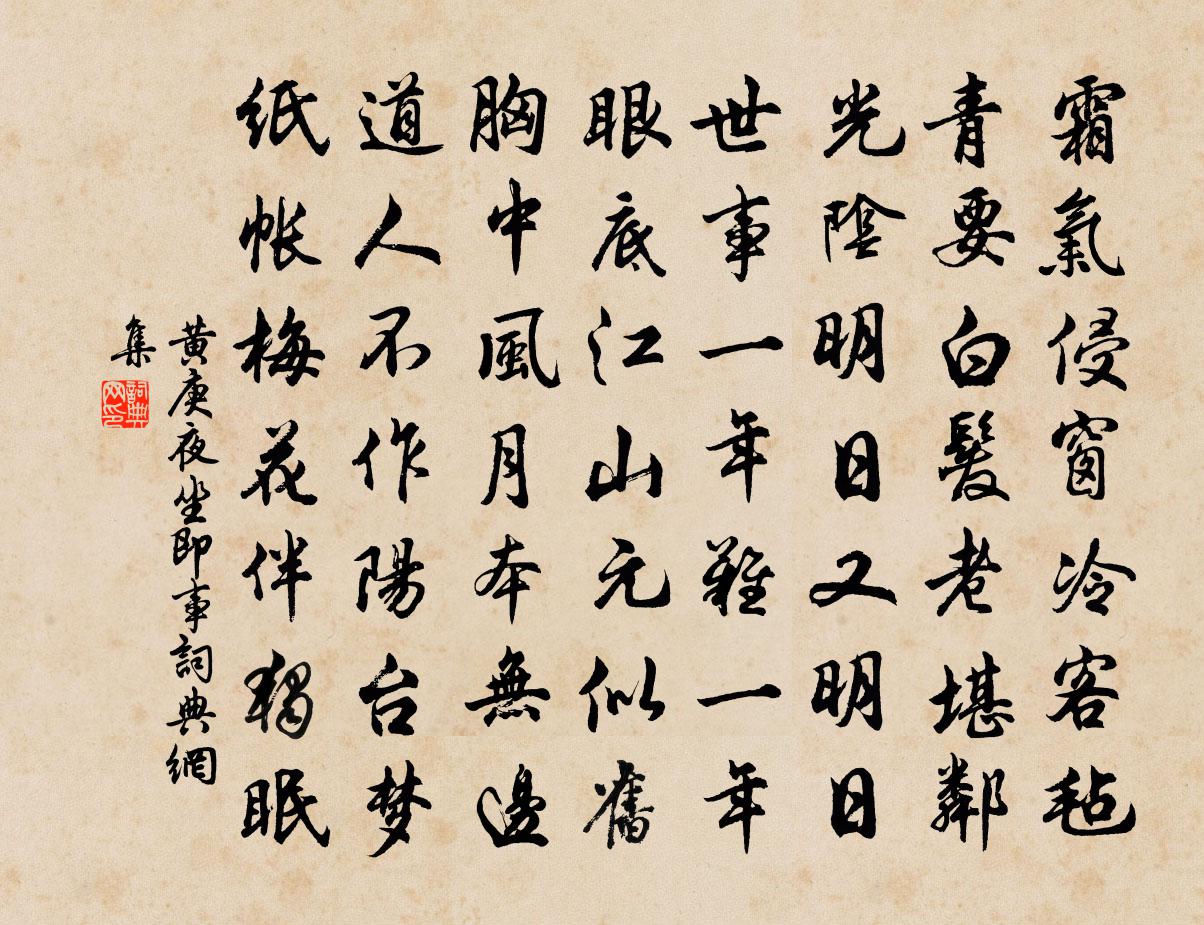 霜氣侵窗冷客毡
青要白髮老堪鄰
光陰明日又明日
世事一年難一年
眼底江山元似舊
胸中風月本無邊
道人不作陽台梦
纸帳梅花伴獨眠
黄庚夜坐即事詞典網
集
詞典网印